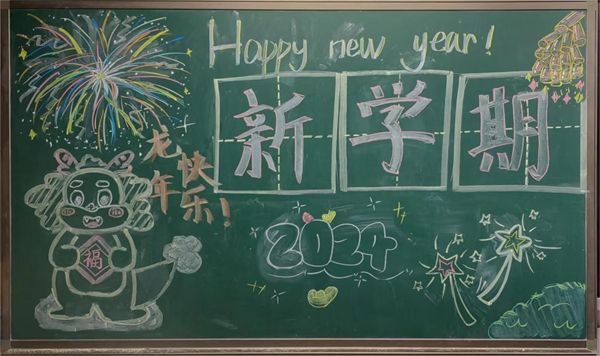 Happy new year!
新学期
龙年
快乐!
福
2024